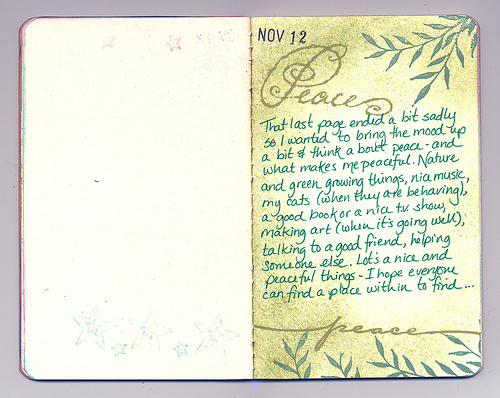 NOV 12
Peace
That last page ended a bit sadly
so I wanted to bring the mood up
a bit & think a bout peace - and
what makes me peaceful. Nature
and green growing things, nice music,
my cats (when they are behaving),
a good book or a nice t.v. show,
making art (when it's going well),
talking to a good friend, helping
someone else. Lots a nice and
peaceful things - I hope everyone
can find a place within to find...
peace